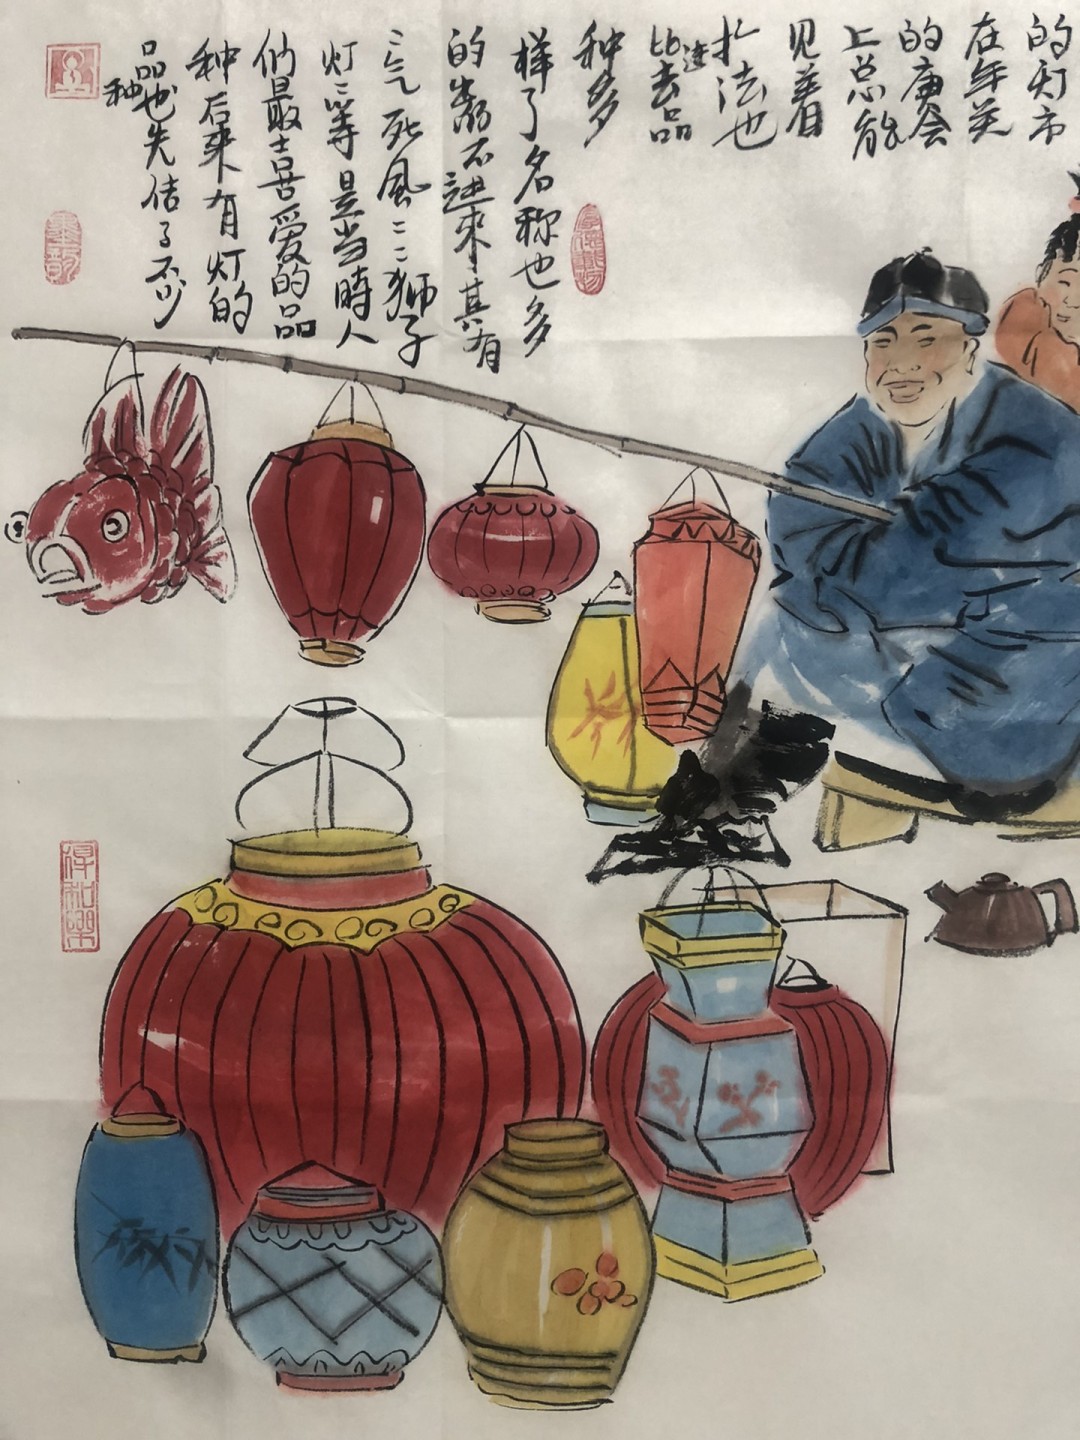 的灯市
在年关
的庙会
上总能
见着
扎法也
比过去品
种多
样了名称也多
的数不过来其有
气死风 狮子
灯 等是当時人
们最喜爱的品
种后来有灯的
品种也失传了不少
得和樂